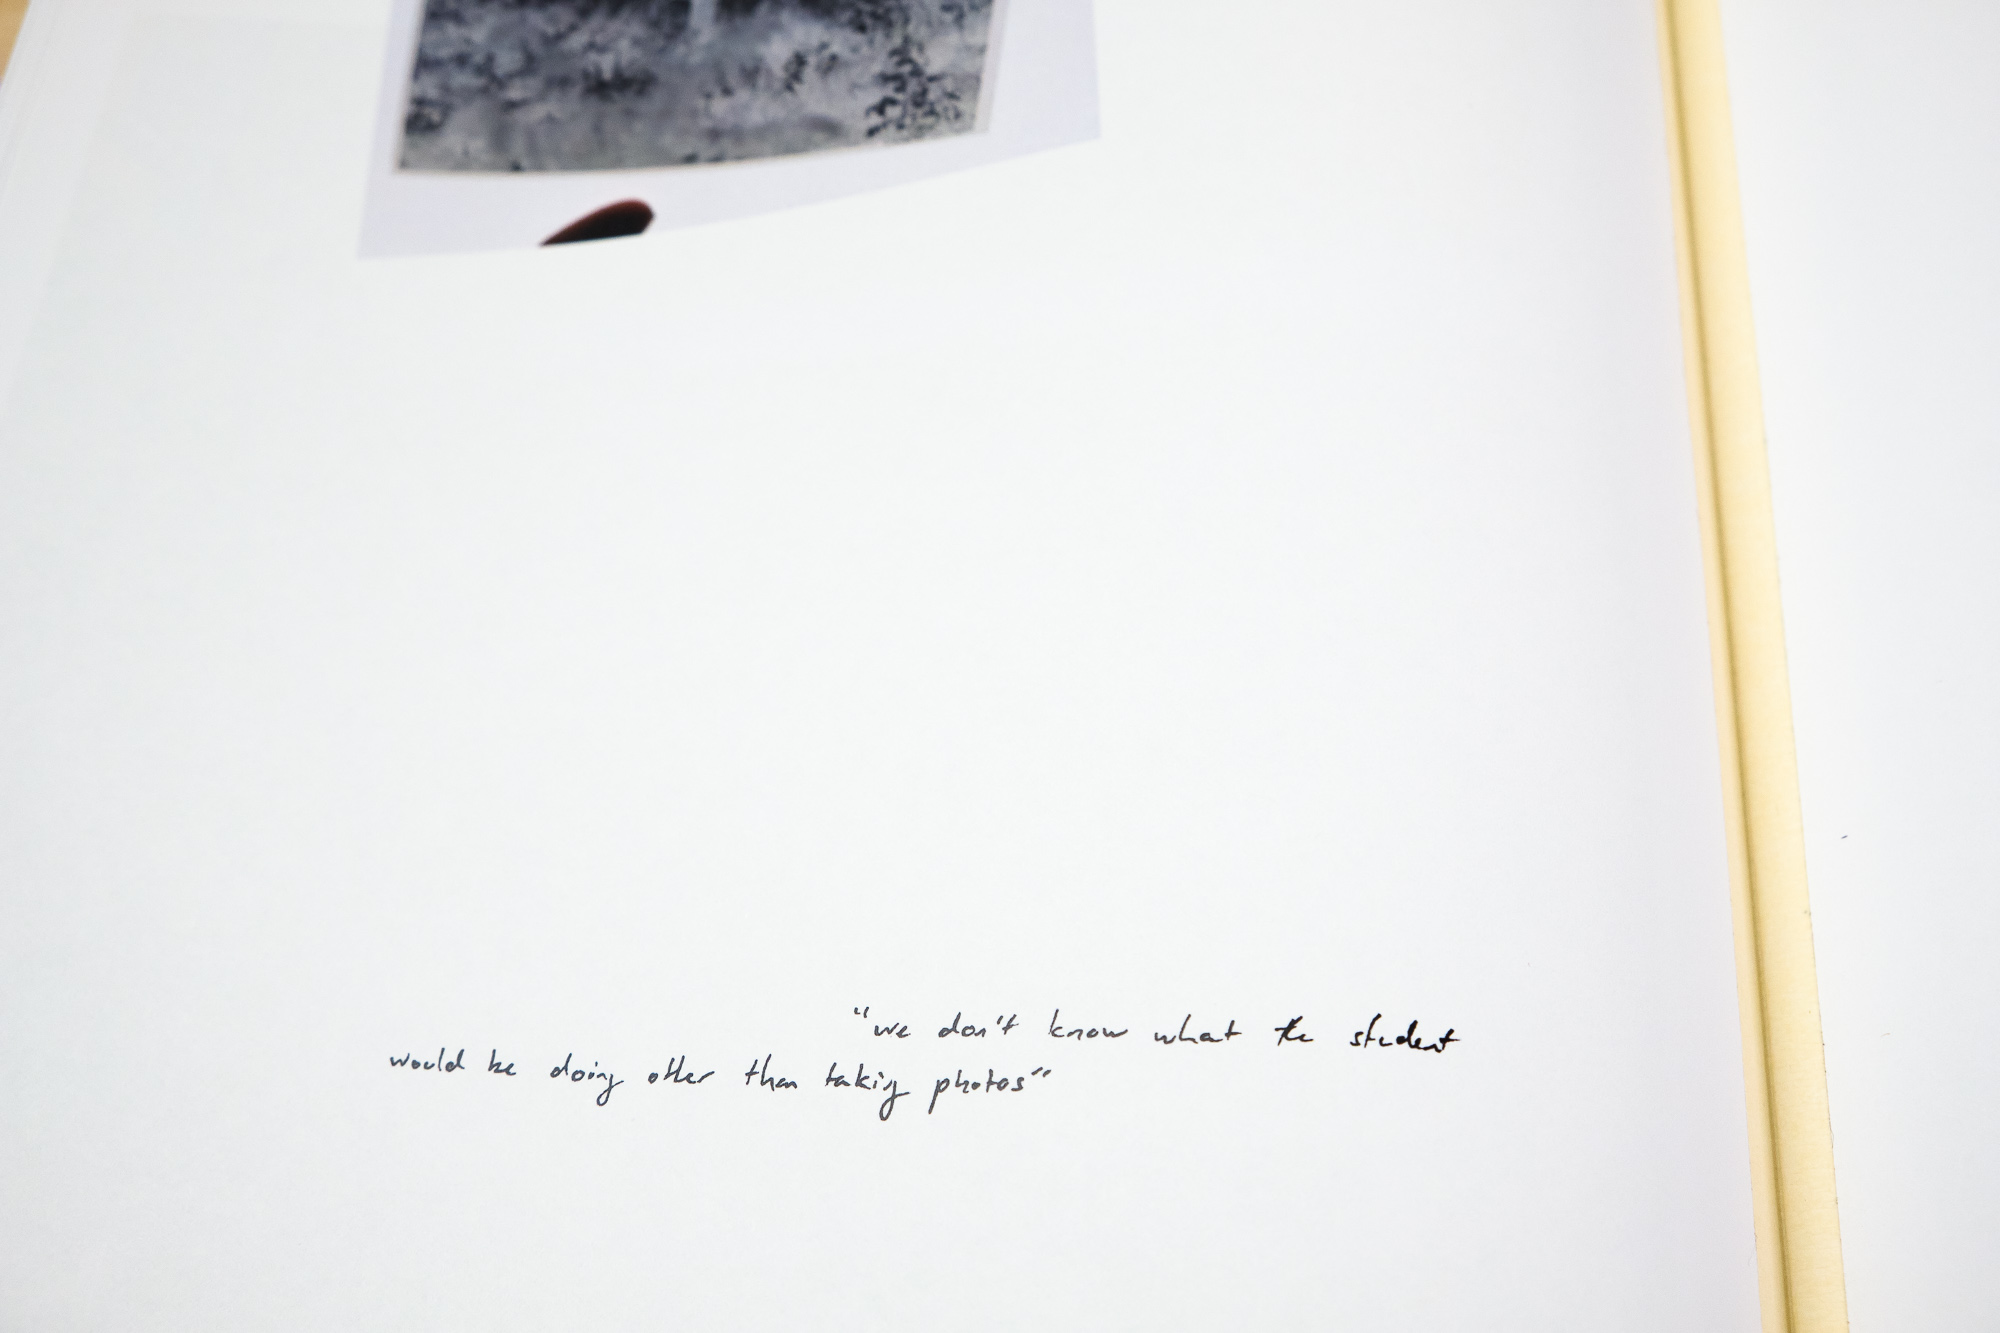 “we don't know what the student
would be doing other than taking photos”